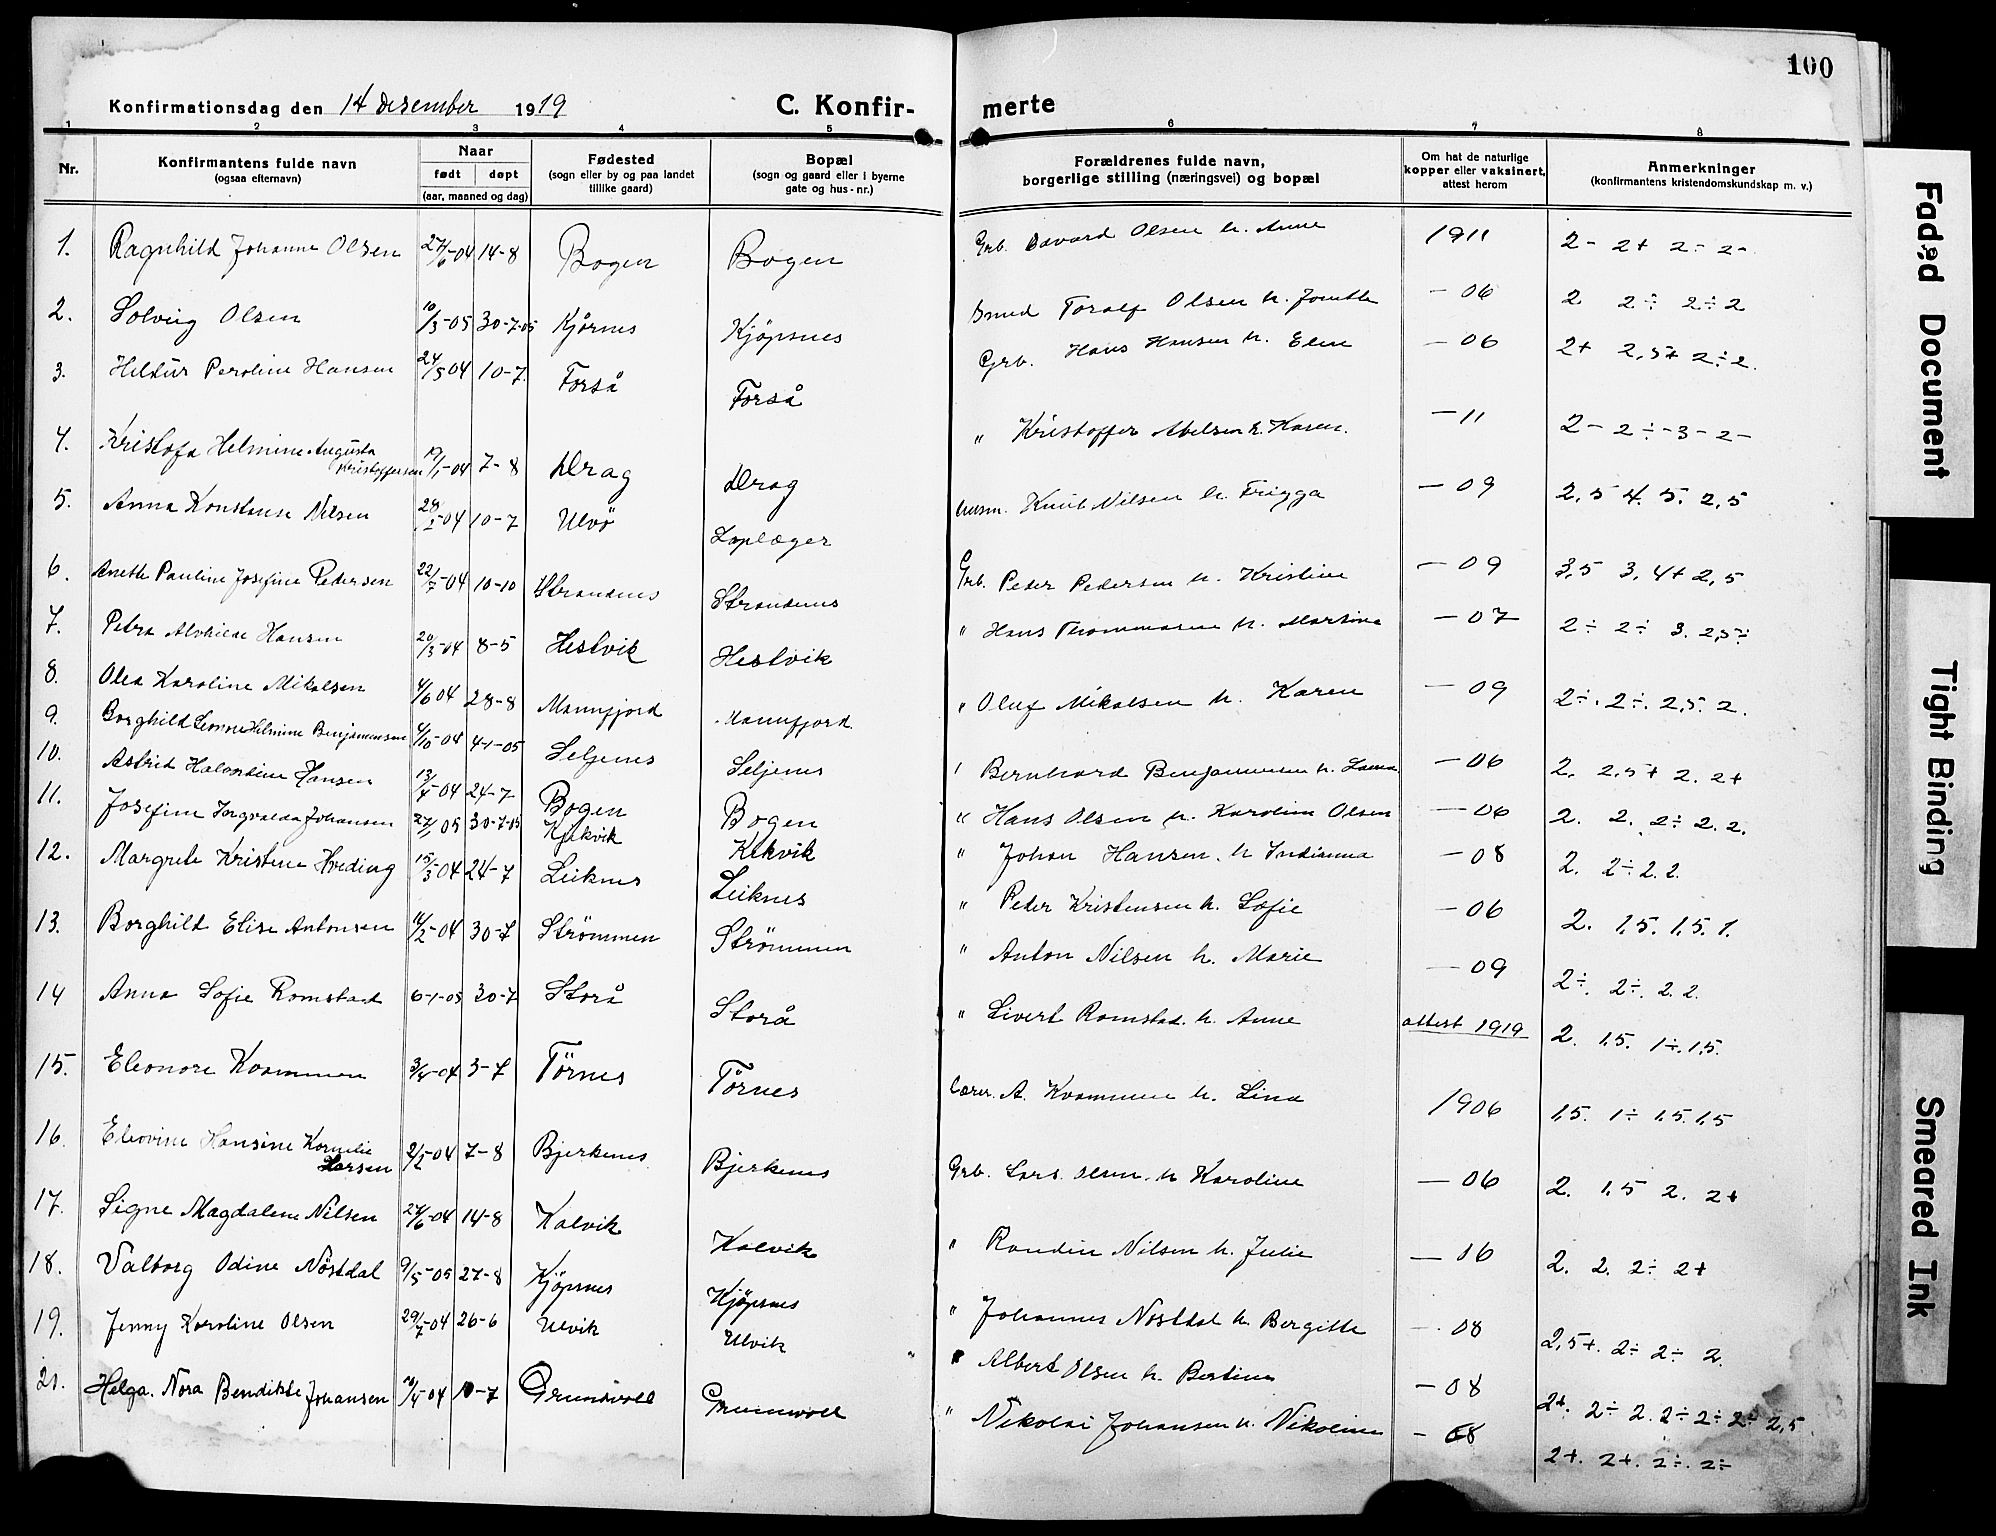 100
Konfirmationsdag den 14 desember 1919
C. Konfir-
merte
1 2 3 4 5 6 7 8
Nr.
Konfirmantens fulde navn
(ogsaa efternavn)
Naar
født døpt
(aar, maaned og dag)
Fødested
(sogn eller by og paa landet
tillike gaard)
Bopæl
(sogn og gaard eller i byerne
gate og hus-nr.)
Forældrenes fulde navn,
borgerlige stilling (næringsvei) og bopæl
Om hat de naturlige
kopper eller vaksinert,
attest herom
Anmerkninger
(konfirmantens kristendomskundskap m. v.)
1. Ragnhild Johanne Olsen 27/6-04 14-8 Bogen Bogen Grb. Edvard Olsen h. Anne 1911 2- 2+ 2- 2-
2. Solveig Olsen 10/3-05 30-7-05 Kjørnes Kjöpsnes Smed Toralf Olsen h. -06 2. 2÷ 2÷2
3. Hildur Peroline Hansen 24/5 04 10-7. Forså Forså Grb. Hans Hansen h. Elen -06 2+ 2,5+ 2÷2.
4. Kristofa Helmine Augusta
Kristoffersen 19/1-04 7-8 Drag Drag " Kristoffer Abelsen h. Karen. -11 2- 2÷-3-2-
5. Anna Konstanse Nilsen 28/2-04 10-7 Ulvö Loplæger Knut Nilsen h. Frigga -09 2,5 4. 5. 2,5
6. Anette Pauline Josefine Pedersen 22/7-04 10-10 Strandnes Strandnes Grb. Peder Pedersen h. Kristine -09 3,5 3, 4+ 2,5
7. Petra Alvhilde Hansen 20/3-04 8-5 Hestvik Hestvik " Hans Thommasen h. Martine -07 2÷ 2÷ 3. 2,5÷
8. Olea Karoline Mikalsen 4/6 04 28-8 Mannfjord Mannfjord. " Oluf Mikalsen h. Karen -09 2÷. 2÷. 2,5. 2.
9. Borghild Leonore Helmine Benjaminsen 4/10-04 4-1-05 Seljenes Seljenes " Bernhard Benjaminsen h. -06 2. 2,5+ 2. 2+
10. Astrid Halvardine Hansen 13/4-04 24-7 Bogen Bogen " Hans Olsen h. Karoline Olsen -06 2. 2. 2÷ 2. 2.
11. Josefine Ingvalda Johansen 27/1 05 30-7-05 Kjekvik Kekvik " Johan Hansen. h Indianna -08 2. 2÷ 2. 2.
12. Margrete Kristene Hveding 15/3 04 24-7 Leiknes Leiknes " Peder Kristensen h. Sofie -06 2. 1,5. 1,5. 1.
13. Borghild Elise Antonsen 11/2-04 30-7 Strömmen Strömmen " Anton Nilsen h. Marie -09 2÷. 2÷. 2. 2.
14 Anna Sofie Romstad 6-1-05 30-7 Storå Storå " Sivert Romstad. h. Anne attest 1919 2. 1,5. 1÷. 1,5.
15. Eleonore Kvammen 3/4-04 3-7 Törnes Törnes Lærer. A. Kvammen h. Lina 1906 1,5. 1÷ 1,5. 1,5
16. Elevine Hansine Kornelie
Larsen 2/2-04 7-8 Bjerkenes Bjerkenes Grb. Lars Olsen. h Karoline -06 2. 1,5 2. 2+
17. Signe Magdalene Nilsen 27/6-04 14-8 Kalvik Kalvik " Randin Nilsen h. Julie -06 2. 2. 2÷ 2+
18. Valborg Odine Nöstdal 9/5-05 27-8 Kjöpsnes Kjöpsnes " Johannes Nöstdal h. Bergitte -08 2,5+. 2÷ 2÷ 2.
19. Jenny Karoline Olsen 29/7-04 26-6 Ulvik Ulvik " " Albert Olsen h. Bertine -08 2+. 2÷ 2. 2÷ 2÷ 2÷ 2,5
21. Helga. Nora Bendikte Johansen 10/4-04 10-7 Grundvoll Grunnvoll " Nikolai Johansen h. Nikoline -08 2+. 2+. 2÷. 2÷
Faded Document
Tight Binding
Smeared Ink